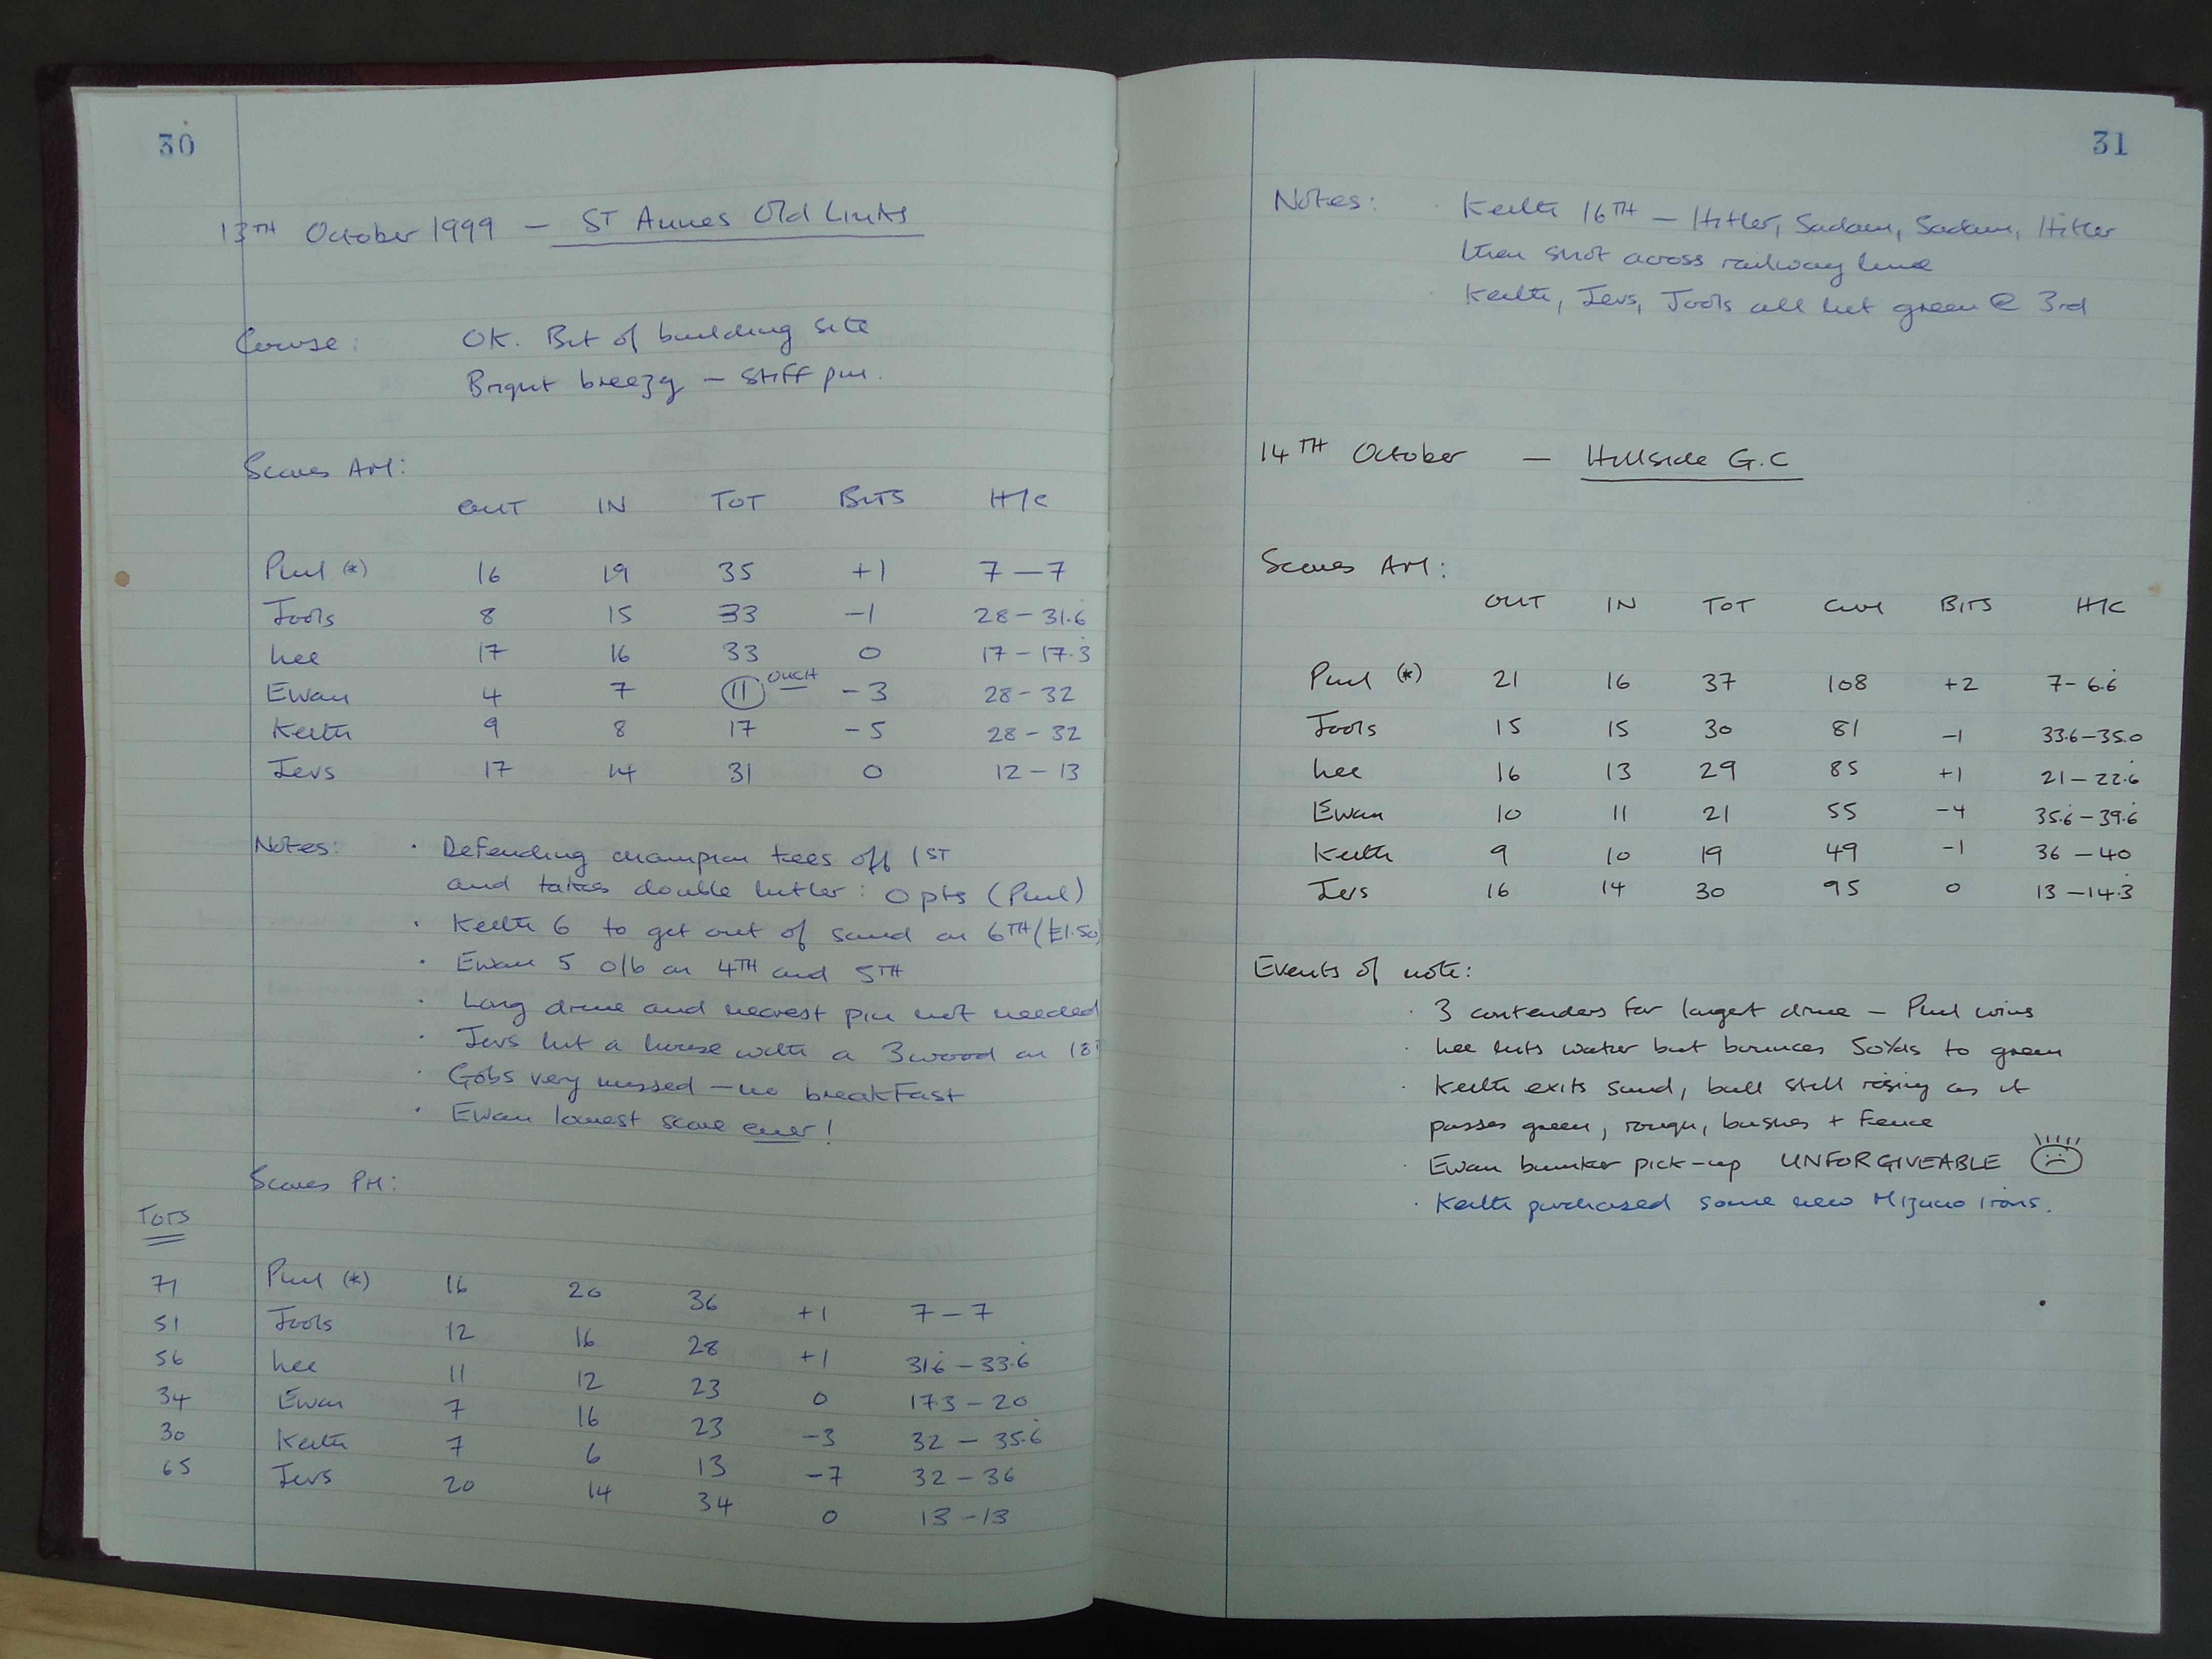 30
13TH October 1999 - ST Annes Old Links
Course: OK. Bit of building site
Bright breezy - stiff pm.
Scores AM:
OUT IN TOT BITS H/C
Paul (*) 16 19 35 +1 7 - 7
Jools 8 15 33 -1 28 - 31.6
Lee 17 16 33 0 17 - 17.3
Ewan 4 7 11 OUCH -3 28 - 32
Keith 9 8 17 -5 28 - 32
Jevs 17 14 31 0 12 - 13
Notes: · Defending champion tees off 1ST
and takes double hitler : 0 pts (Paul)
· Keith 6 to get out of sand on 6TH (£1.50)
· Ewan 5 o/b on 4TH and 5TH
· Long drive and nearest pin not needed
· Jevs hit a house with a 3 wood on 18T
· Gobs very missed - no breakfast
· Ewan lowest score ever!
Scores PM:
TOTS
71 Paul (*) 16 20 36 +1 7 - 7
51 Jools 12 16 28 +1 31.6 - 33.6
56 Lee 11 12 23 0 17.3 - 20
34 Ewan 7 16 23 -3 32 - 35.6
30 Keith 7 6 13 -7 32 - 36
65 Jevs 20 14 34 0 13 - 13
31
Notes: · Keith 16TH - Hitler, Sadam, Sadam, Hitler
then shot across railway line
· Keith, Jevs, Jools all hit green @ 3rd
14TH October - Hillside G.C
Scores AM:
OUT IN TOT CUM BITS H/C
Paul (*) 21 16 37 108 +2 7 - 6.6
Jools 15 15 30 81 -1 33.6 - 35.0
Lee 16 13 29 85 +1 21 - 22.6
Ewan 10 11 21 55 -4 35.6 - 39.6
Keith 9 10 19 49 -1 36 - 40
Jevs 16 14 30 95 0 13 - 14.3
Events of note:
· 3 contenders for largest drive - Paul wins
· Lee hits water but bounces 50yds to green
· Keith exits sand, ball still rising as it
passes green, rough, bushes + fence
· Ewan bunker pick-up UNFORGIVEABLE
· Keith purchased some new Mizuno irons.